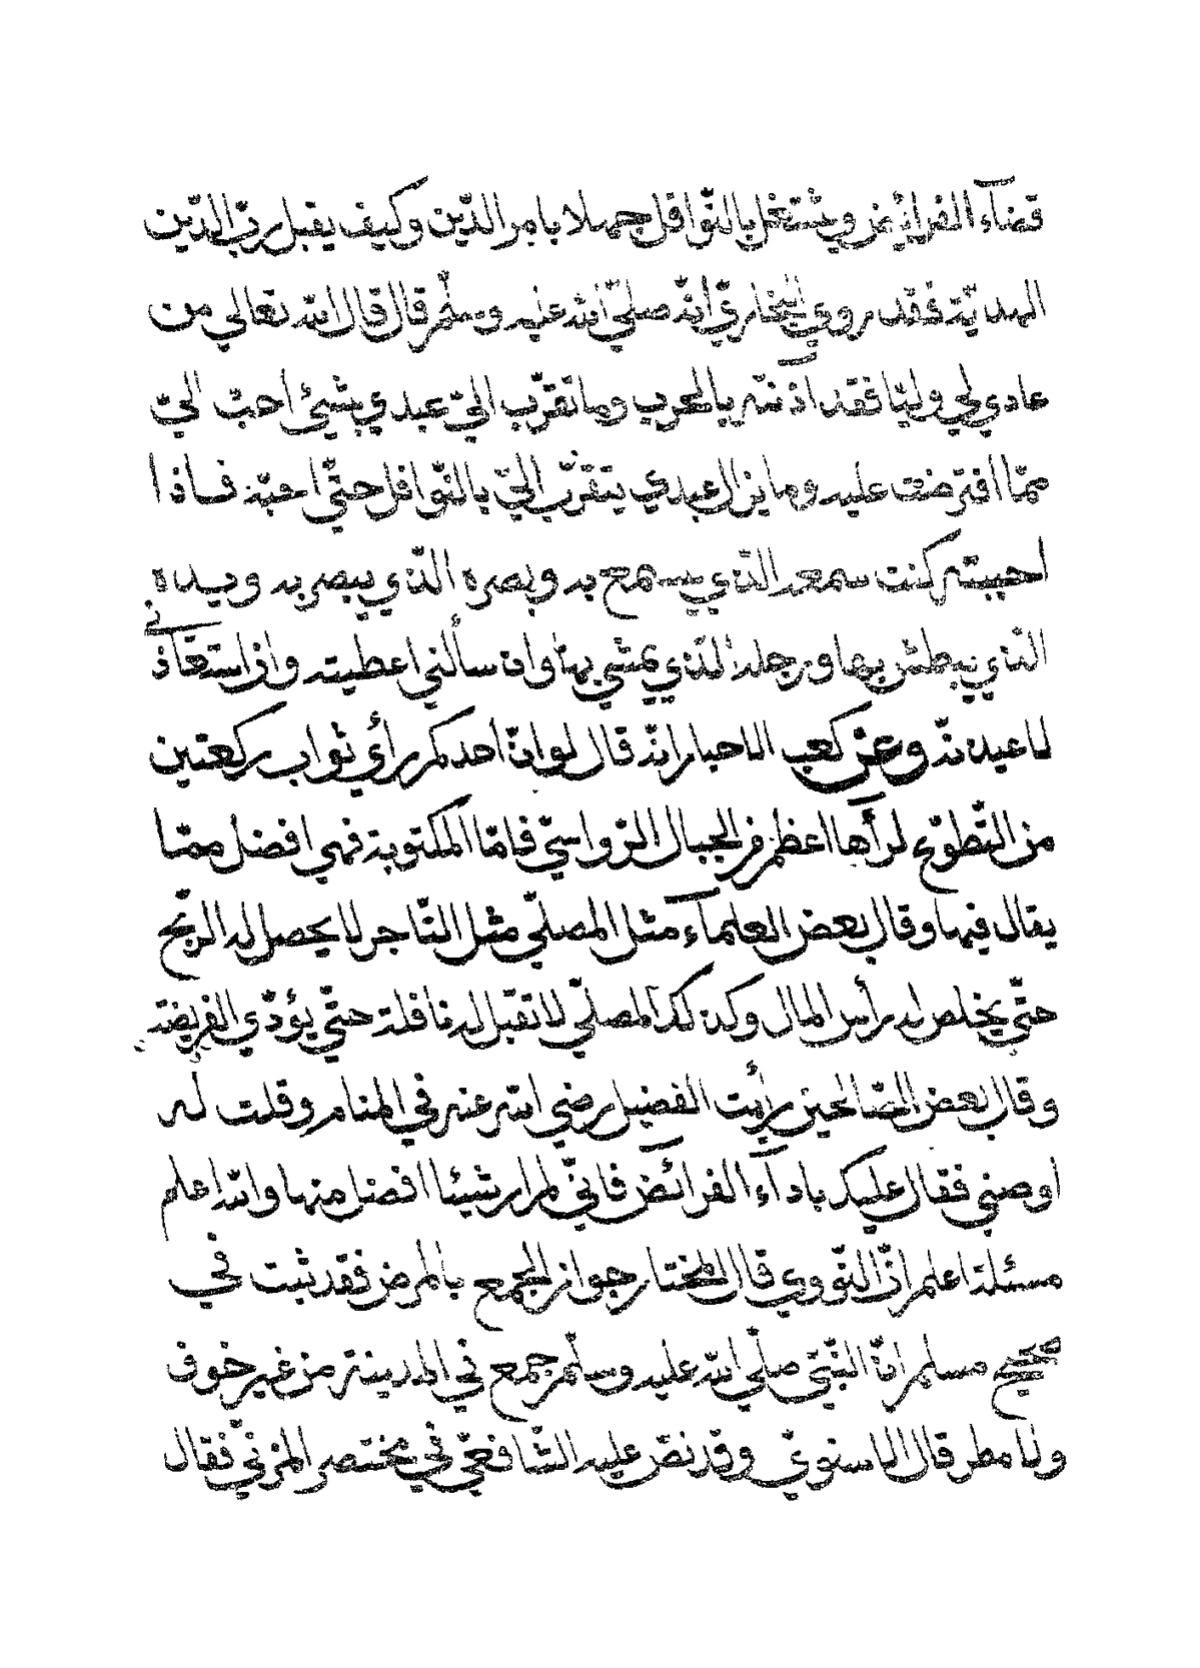 قضآء الفرائض ويشتغل بالنّوافل جهلا بامر الدّين وكيف يقبل ربّ الدّين
الهديّة فقد روي البخاريّ انّه صلّي الله عليه وسلّم قال قال الله تعالي من
عادي لي وليّا فقد آذنته بالحرب وما تقرّب اليّ عبدي بشيئ احبّ اليّ
ممّا افترضت عليه وما يزال عبدي يتقرّب اليّ بالنّوافل حتّي احبّه فاذا
احببته كنت سمعه الّذي يسمع به وبصره الّذي يبصر به ويده
الّتي يبطش بها ورجله الّتي يمشي بها وان سألني اعطيته وان استعاذني
لاعيذنّه وعن كعب الاحبار انّه قال لو انّ احدكم رأي ثواب ركعتين
من التّطوّع لرآها اعظم من الجبال الرّواسي فامّا المكتوبة فهي افضل ممّا
يقال فيها وقال بعض العلمآء مثل المصلّي مثل التّاجر لا يحصل له الرّبح
حتّي يخلص له رأس المال وكذلك المصلّي لا تقبل له نافلة حتّي يؤدّي الفريضة
وقال بعض الصّالحين رأيت الفضيل رضي الله عنه في المنام وقلت له
اوصني فقال عليك بادآء الفرآئض فانّي لم ار شيئا افضل منها والله اعلم
مسئلة اعلم انّ النّووي قال المختار جواز الجمع بالمرض فقد ثبت في
صحيح مسلم انّ النّبيّ صلّي الله عليه وسلّم جمع في المدينة من غير خوف
ولا مطر قال الاسنويّ وقد نصّ عليه الشّافعيّ في مختصر المزنيّ فقال